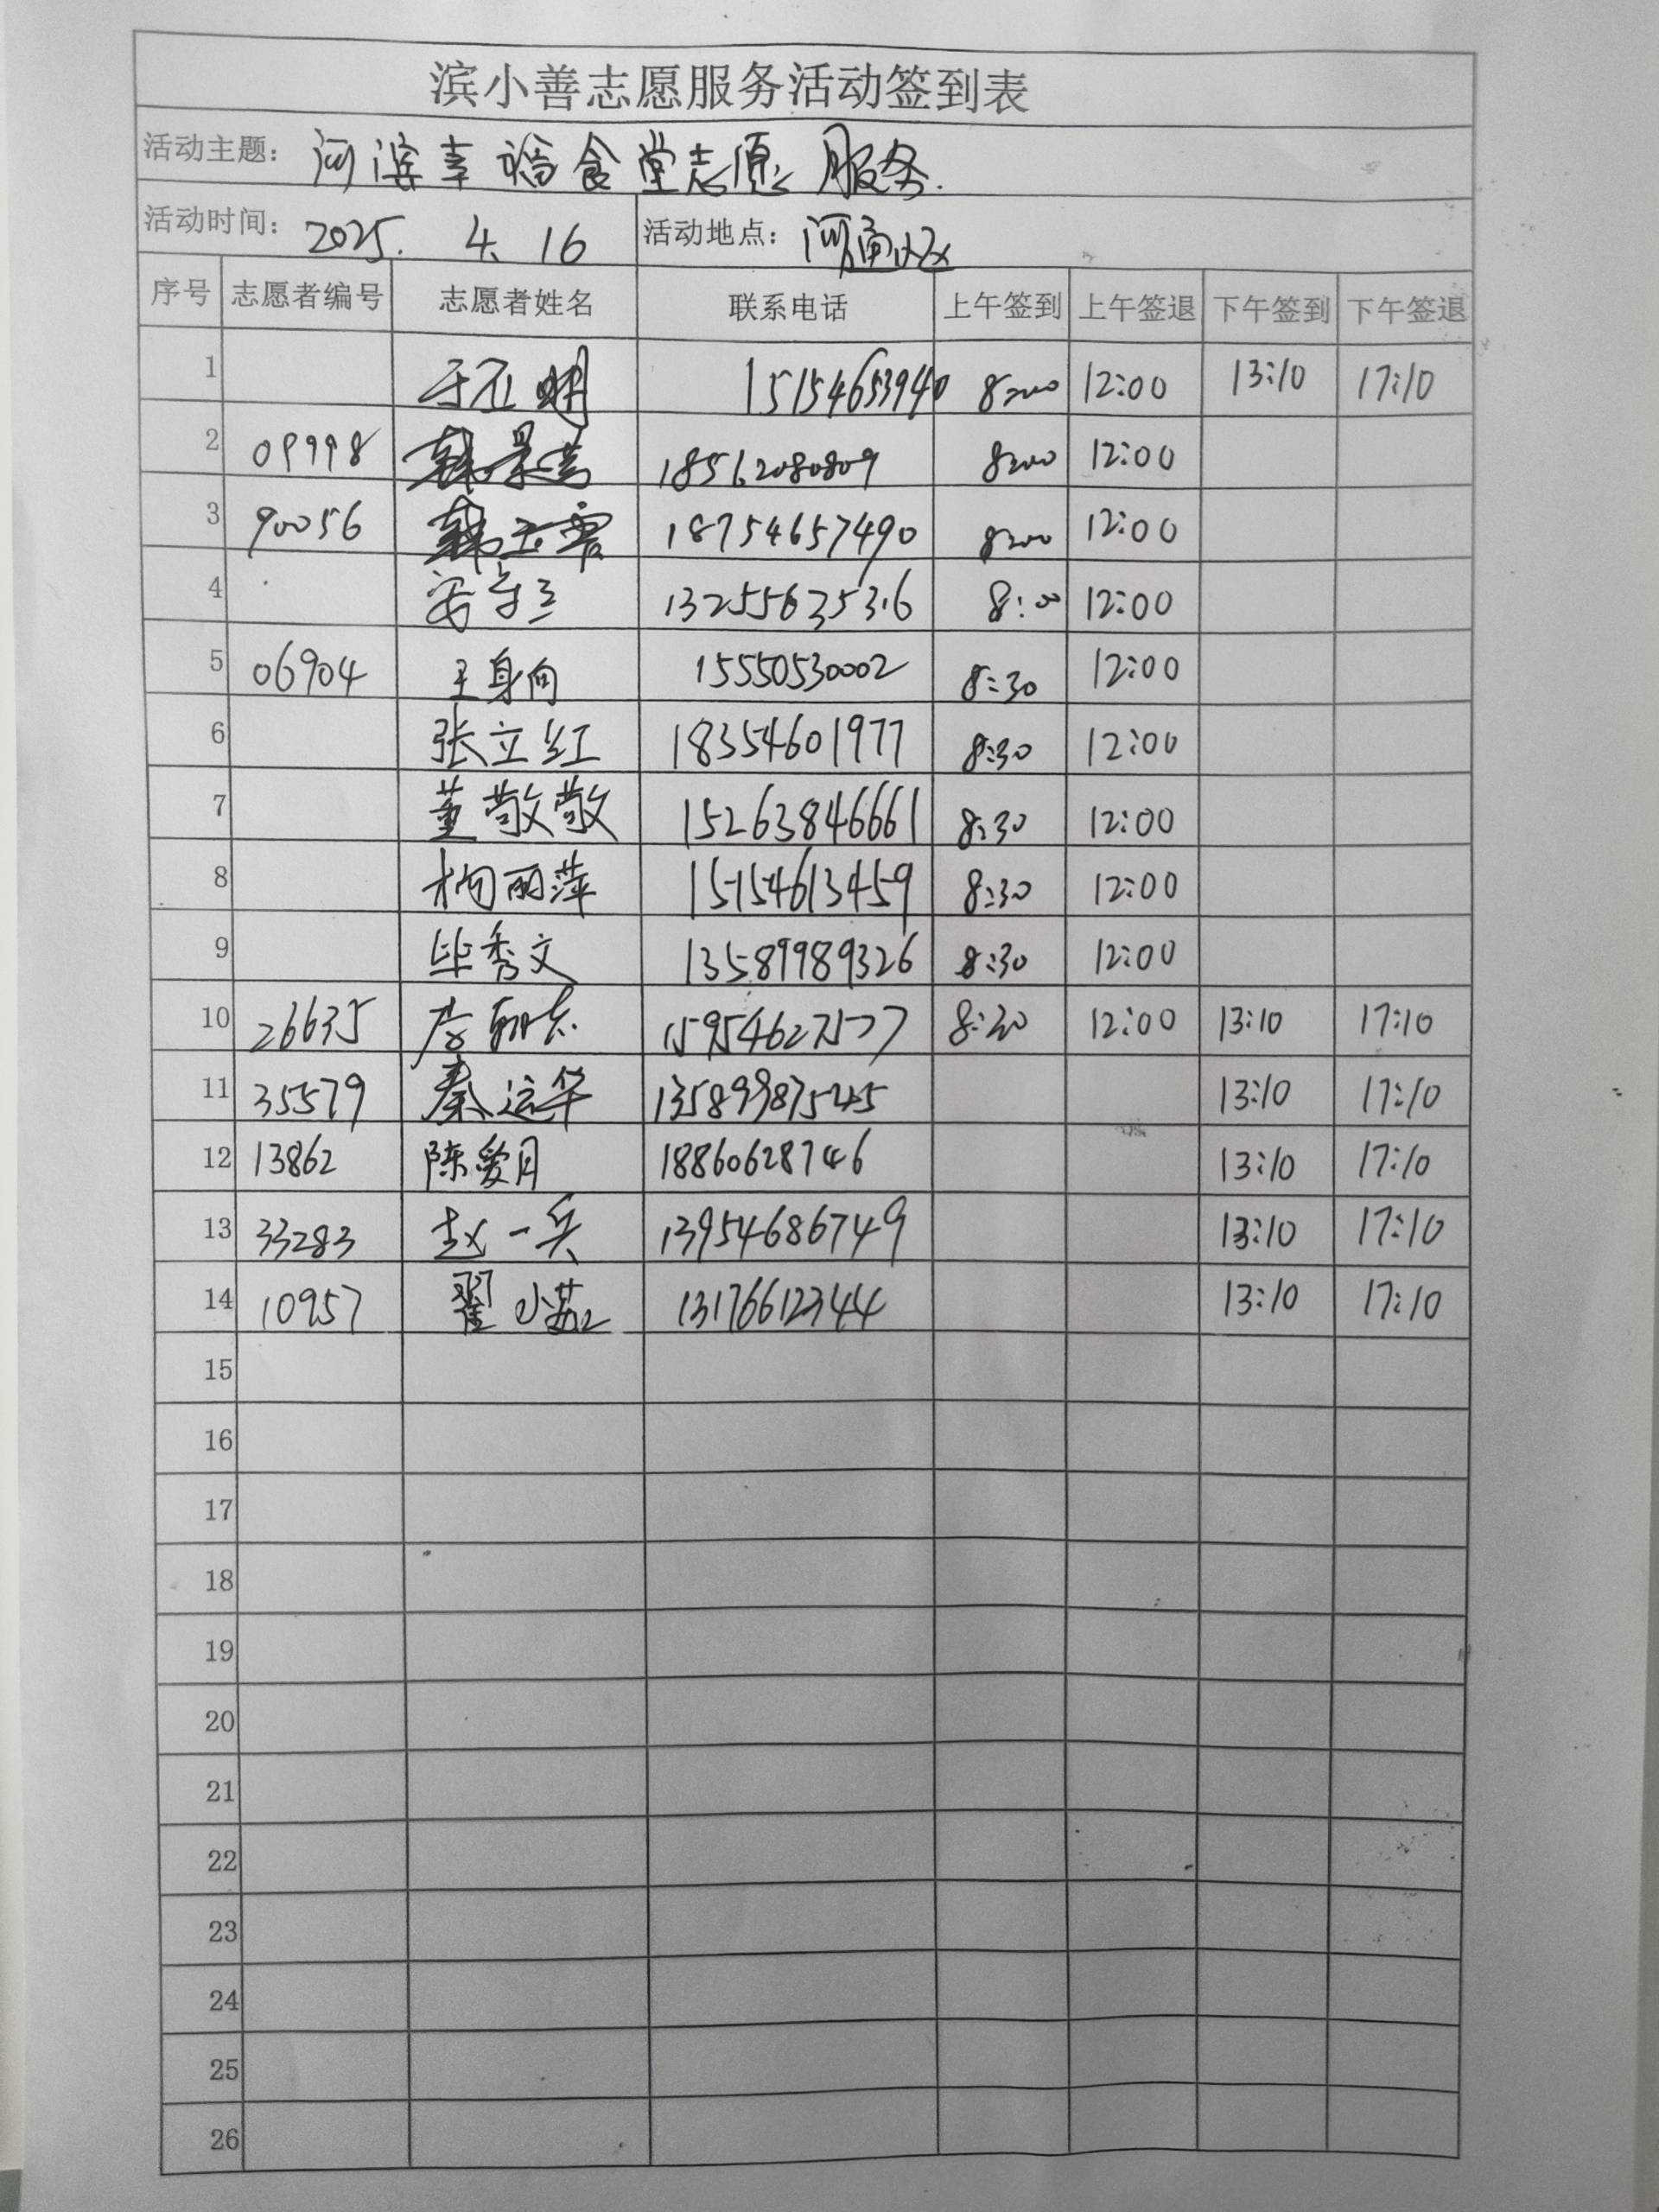 滨小善志愿服务活动签到表
活动主题： 河滨幸福食堂志愿服务.
活动时间： 2025. 4. 16 活动地点： 河南社区
序号 志愿者编号 志愿者姓名 联系电话 上午签到 上午签退 下午签到 下午签退
1 15154653940 8:00 12:00 13:10 17:10
2 09998 18562080809 8:00 12:00
3 90056 18754657490 8:00 12:00
4 13255625316 8:00 12:00
5 06904 王身向 15550530002 8:30 12:00
6 张立红 18354601977 8:30 12:00
7 董敬敬 15263846661 8:30 12:00
8 杨丽萍 15154613459 8:30 12:00
9 毕秀文 13589989326 8:30 12:00
10 26635 15954627577 8:30 12:00 13:10 17:10
11 35579 秦运华 13589987525 13:10 17:10
12 13862 陈爱月 18860628746 13:10 17:10
13 33283 赵一兵 13954686749 13:10 17:10
14 10957 翟小苏 13176612344 13:10 17:10
15
16
17
18
19
20
21
22
23
24
25
26